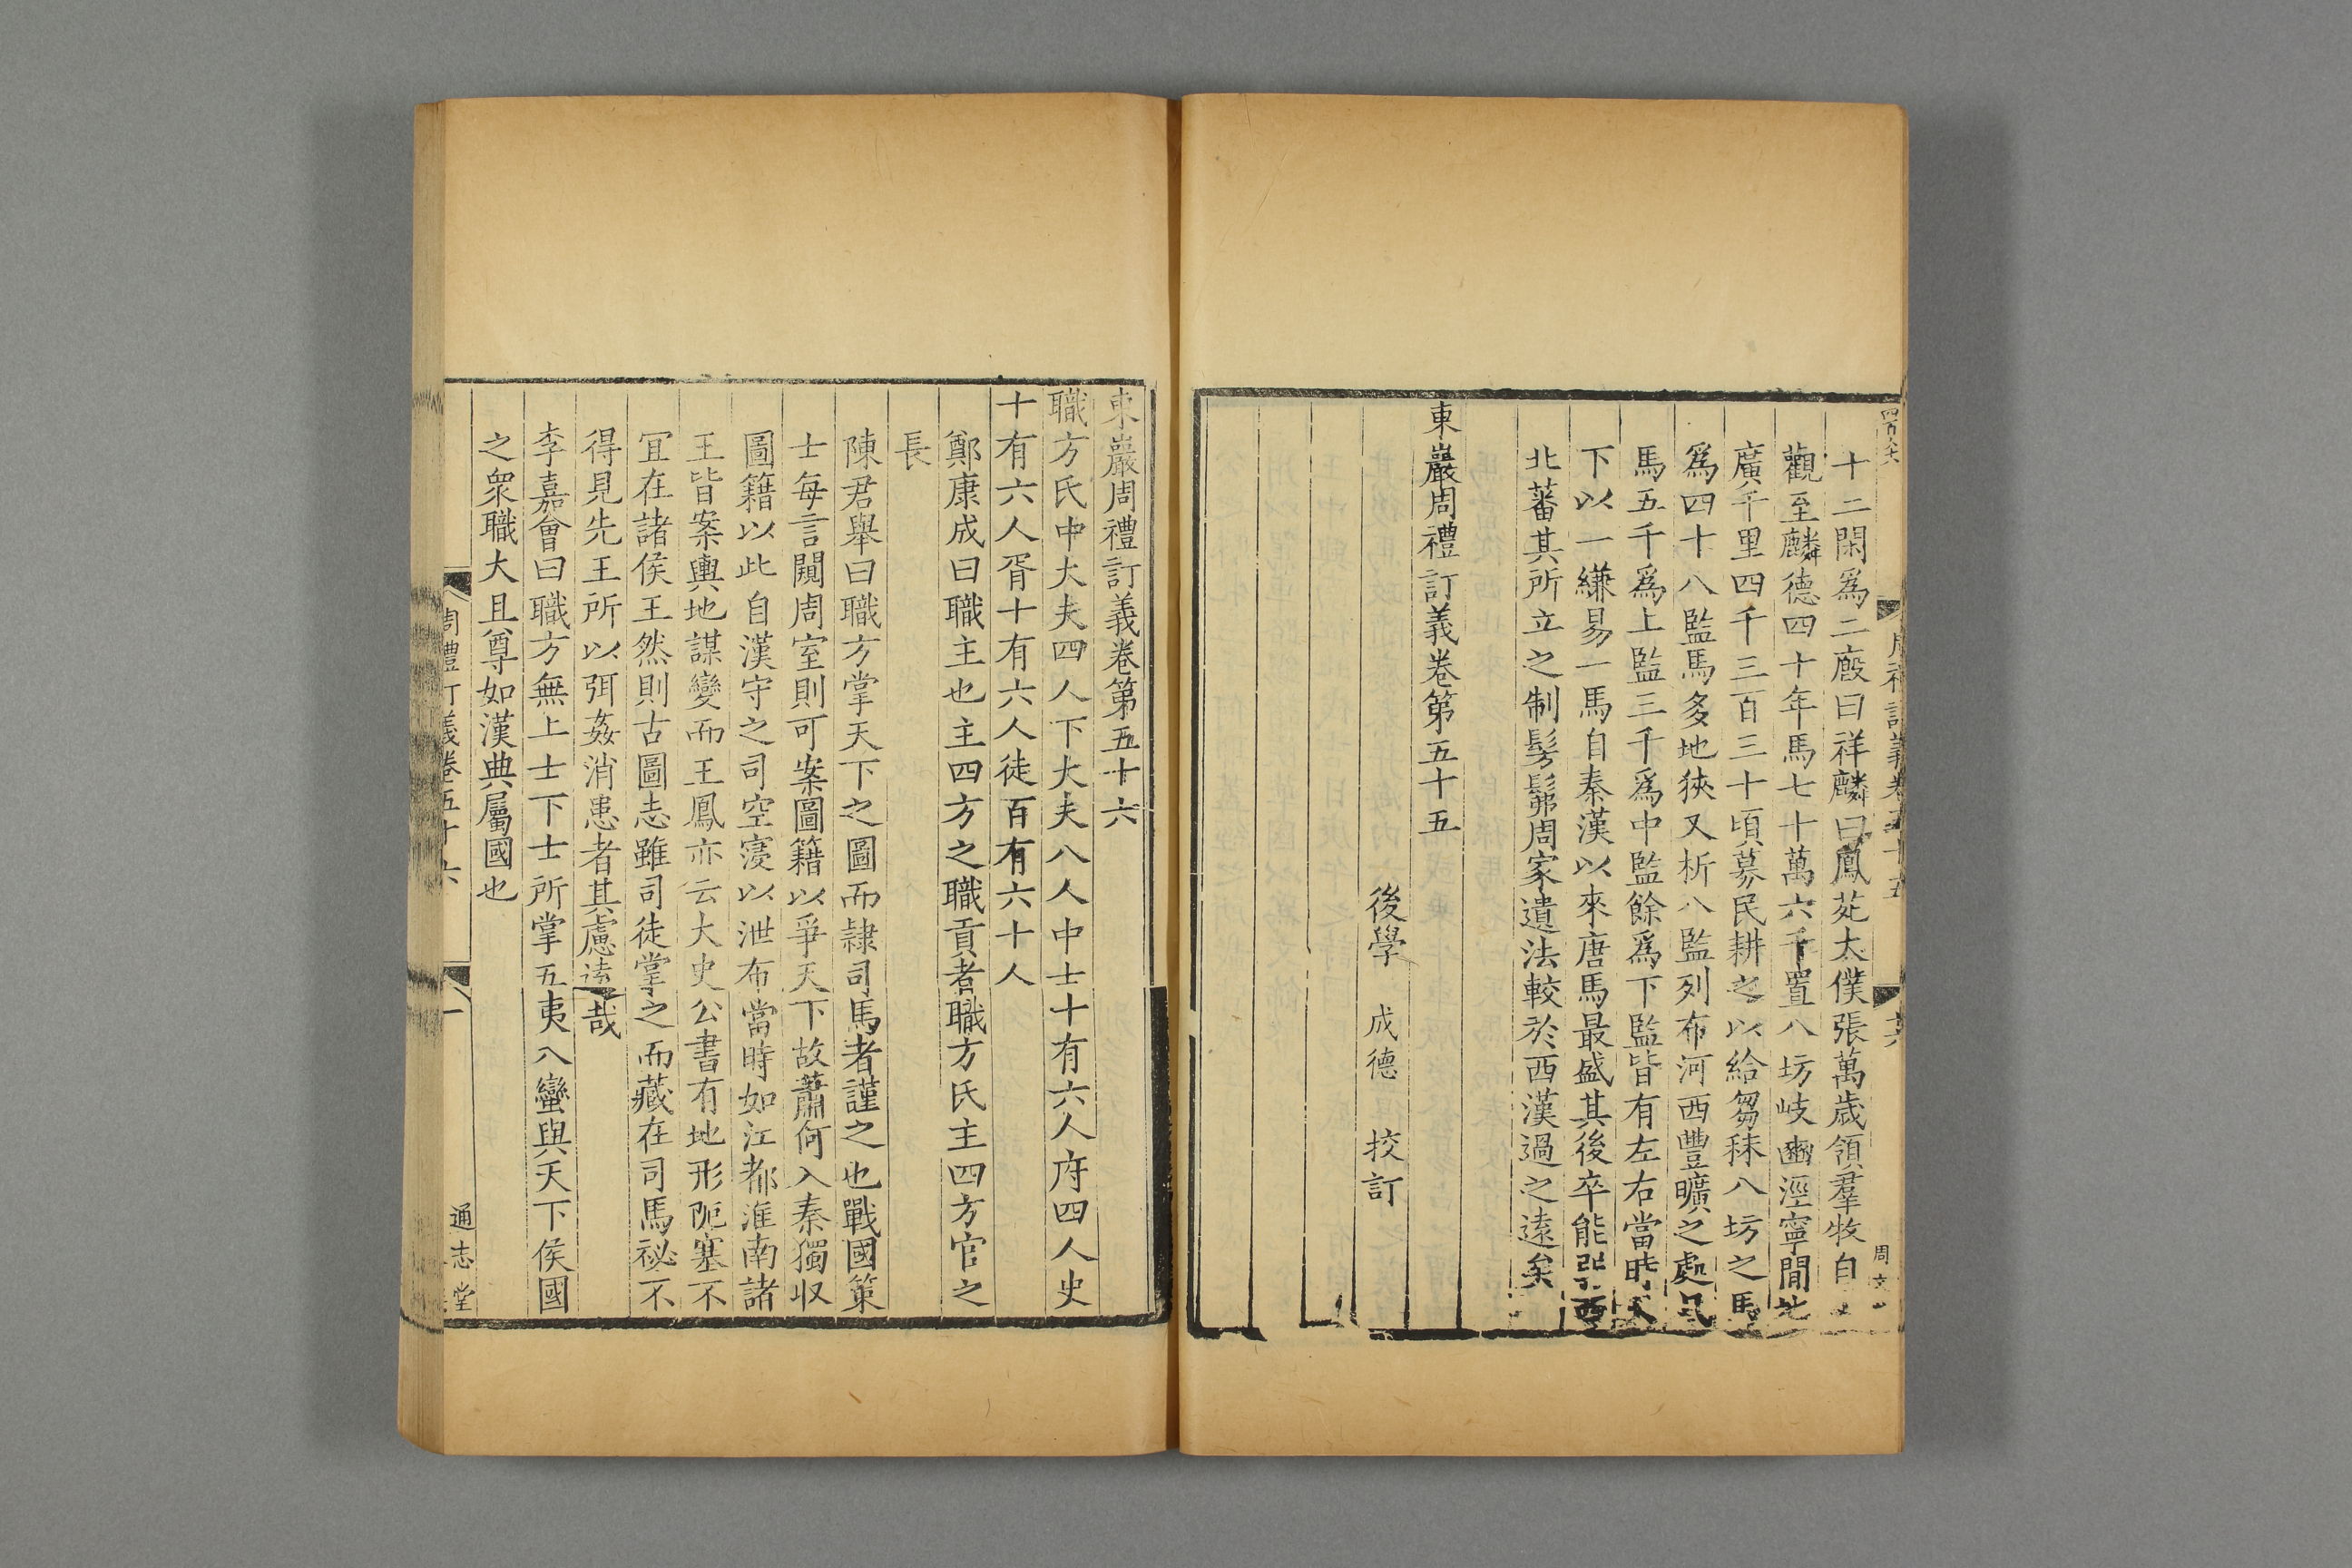 十二閑爲二廏曰祥麟曰鳳苑太僕張萬歲領羣牧自
觀至麟德四十年馬七十萬六千置八坊岐豳涇寧閒地
廣千里四千三百三十頃募民耕之以給芻秣八坊之馬
爲四十八監馬多地狹又析八監列布河西豐曠之處凡
馬五千爲上監三千爲中監餘爲下監皆有左右當時天
下以一縑易一馬自秦漢以來唐馬最盛其後卒能
北蕃其所立之制髣髴周家遺法較於西漢過之遠矣
東巖周禮訂義卷第五十五
後學 成德 挍訂
東巖周禮訂義卷第五十六
職方氏中大夫四人下大夫八人中士十有六人府四人史
十有六人胥十有六人徒百有六十人
鄭康成曰職主也主四方之職貢者職方氏主四方官之
長
陳君舉曰職方掌天下之圖而隷司馬者謹之也戰國策
士每言闚周室則可案圖籍以爭天下故蕭何入秦獨収
圖籍以此自漢守之司空寖以泄布當時如江都淮南諸
王皆案輿地謀變而王鳳亦云大史公書有地形阨塞不
冝在諸侯王然則古圖志雖司徒掌之而藏在司馬祕不
得見先王所以弭姦消患者其慮遠哉
李嘉會曰職方無上士下士所掌五夷八蠻與天下侯國
之衆職大且尊如漢典屬國也
周禮訂義卷五十六
一
通志堂